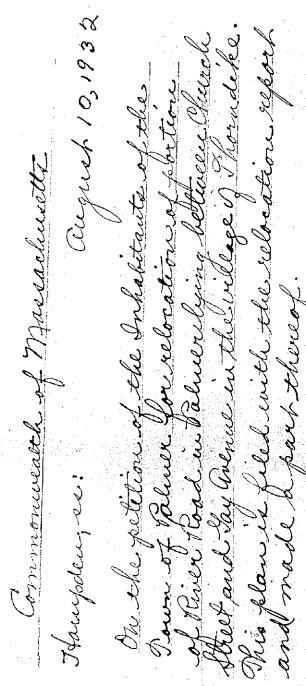 Commonwealth of Massachusetts
Hampden, ss: August 10, 1932
On the petition of the Inhabitants of the
Town of Palmer for relocation of portion
of River Road in Palmer lying between Church
Street and Gay Avenue in the village of Thorndike.
This plan is filed with the relocation report
and made a part thereof.